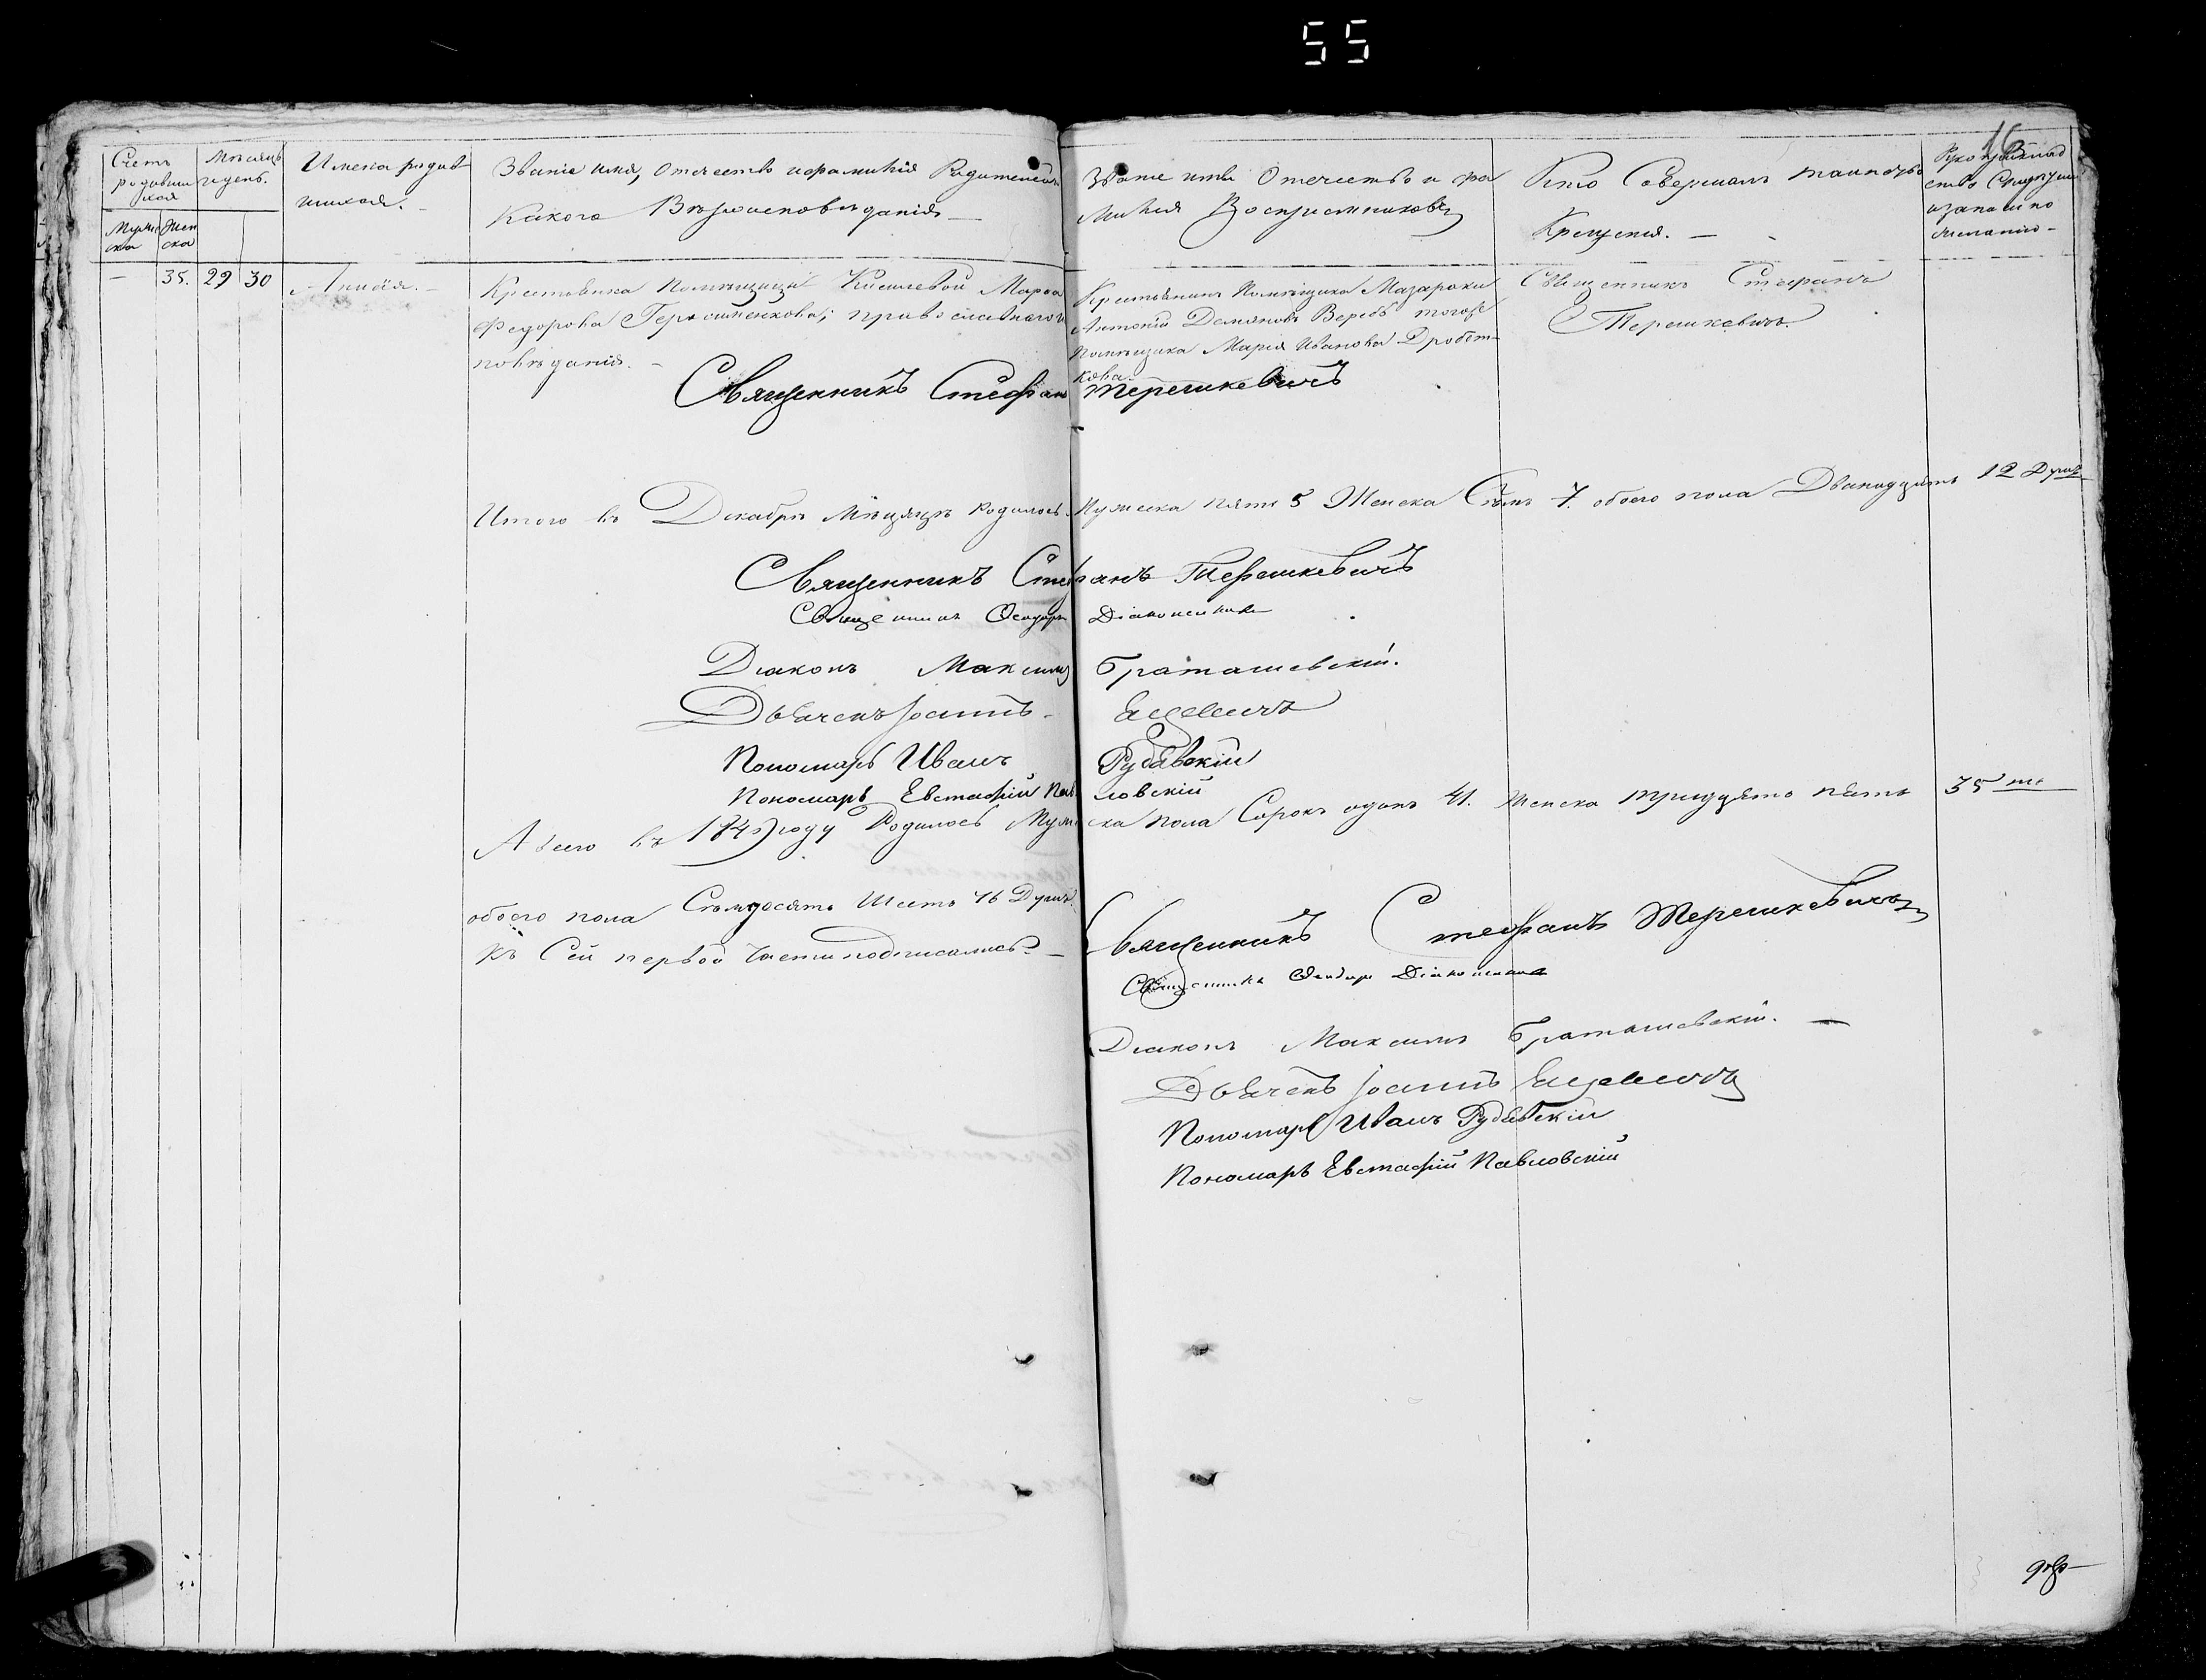 55
16
Счетъ родившихся
Мѣсяцъ и день.
Имена родившихся.
Званіе имя, Отчество и фамилія Родителей
Какого Вѣроисповѣданія
Званіе имя Отчество и фамилия Воспріемниковъ
Кто Совершалъ таинство Крещенія.
желанію
Мужеска
Женска
— 35. 29 30
Крестьянка Помѣщицы Киселевой Марѳа
Федорова Герасименкова; православнаго
повѣданія.
Крестьянинъ Помѣщика Мазараки
Антоній Демяновъ Веребъ тогожъ
Помѣщика Марія Иванова Дробот-
кова.
Священникъ Стефанъ
Терешкевичъ.
Священникъ Стефанъ Терешкевичъ
Итого въ Декабрѣ Мѣцяцѣ родилось Мужеска пять 5 Женска Сѣмь 7. обоего пола Дванадцять 12 Душъ
Священникъ Стефанъ Терешкевичъ
Священникъ
Діаконъ Максимъ Браташевскій.
Дьячекъ Іоаннъ
Пономарь Иванъ Рудавскій
Пономарь Евстафій Павловскій
А всего въ году Родилось Мужеска пола Сорокъ одинъ 41. Женска тридцять пять 35
обоего пола Сѣмдесять Шесть 76 Душъ.
Къ Сей первой Части подписались. —
Священникъ Стефанъ Терешкевичъ
Священникъ
Діаконъ Максимъ Браташевскій. —
Дьячекъ Іоаннъ
Пономарь Иванъ Рудавскій
Пономарь Евстафій Павловскій